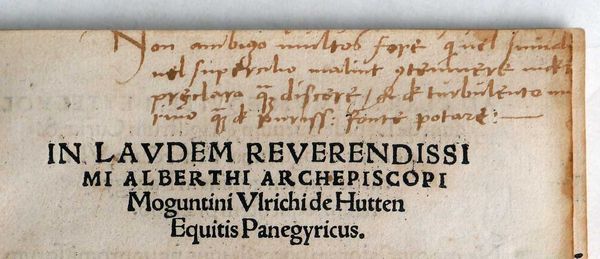 Non ambigo multos fore qui vel
vel supercilio malint contemnere
preclara quam discere / & de turbulento
rivo quam de puriss: fonte potare:
IN LAVDEM REVERENDISSI
MI ALBERTHI ARCHEPISCOPI
Moguntini Vlrichi de Hutten
Equitis Panegyricus.